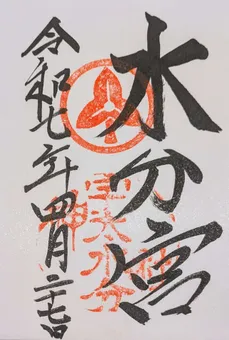 水分宮
令和七年四月二十七日